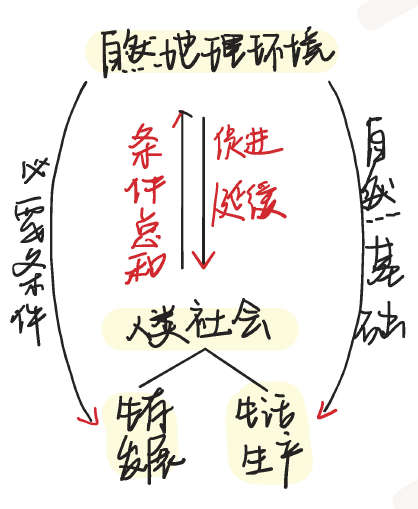 自然地理环境
必要条件
条件总和
促进
延缓
自然基础
人类社会
生存
发展
生活
生产